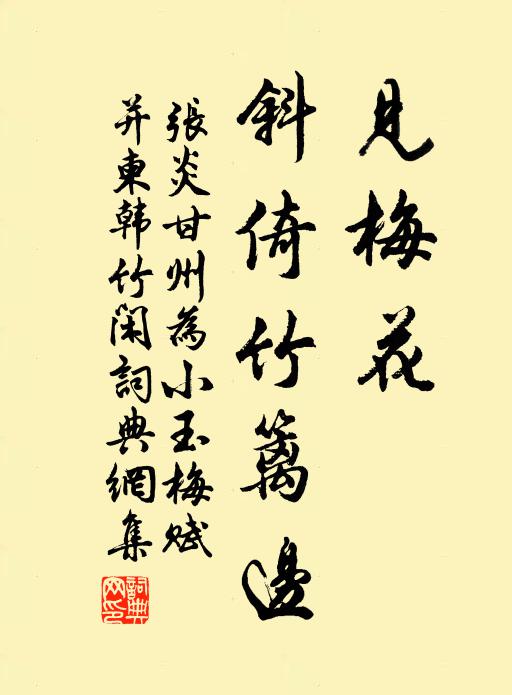 見梅花
斜倚竹籬邊
張炎甘州為小玉梅賦
并東韩竹閑詞典網集
詞典